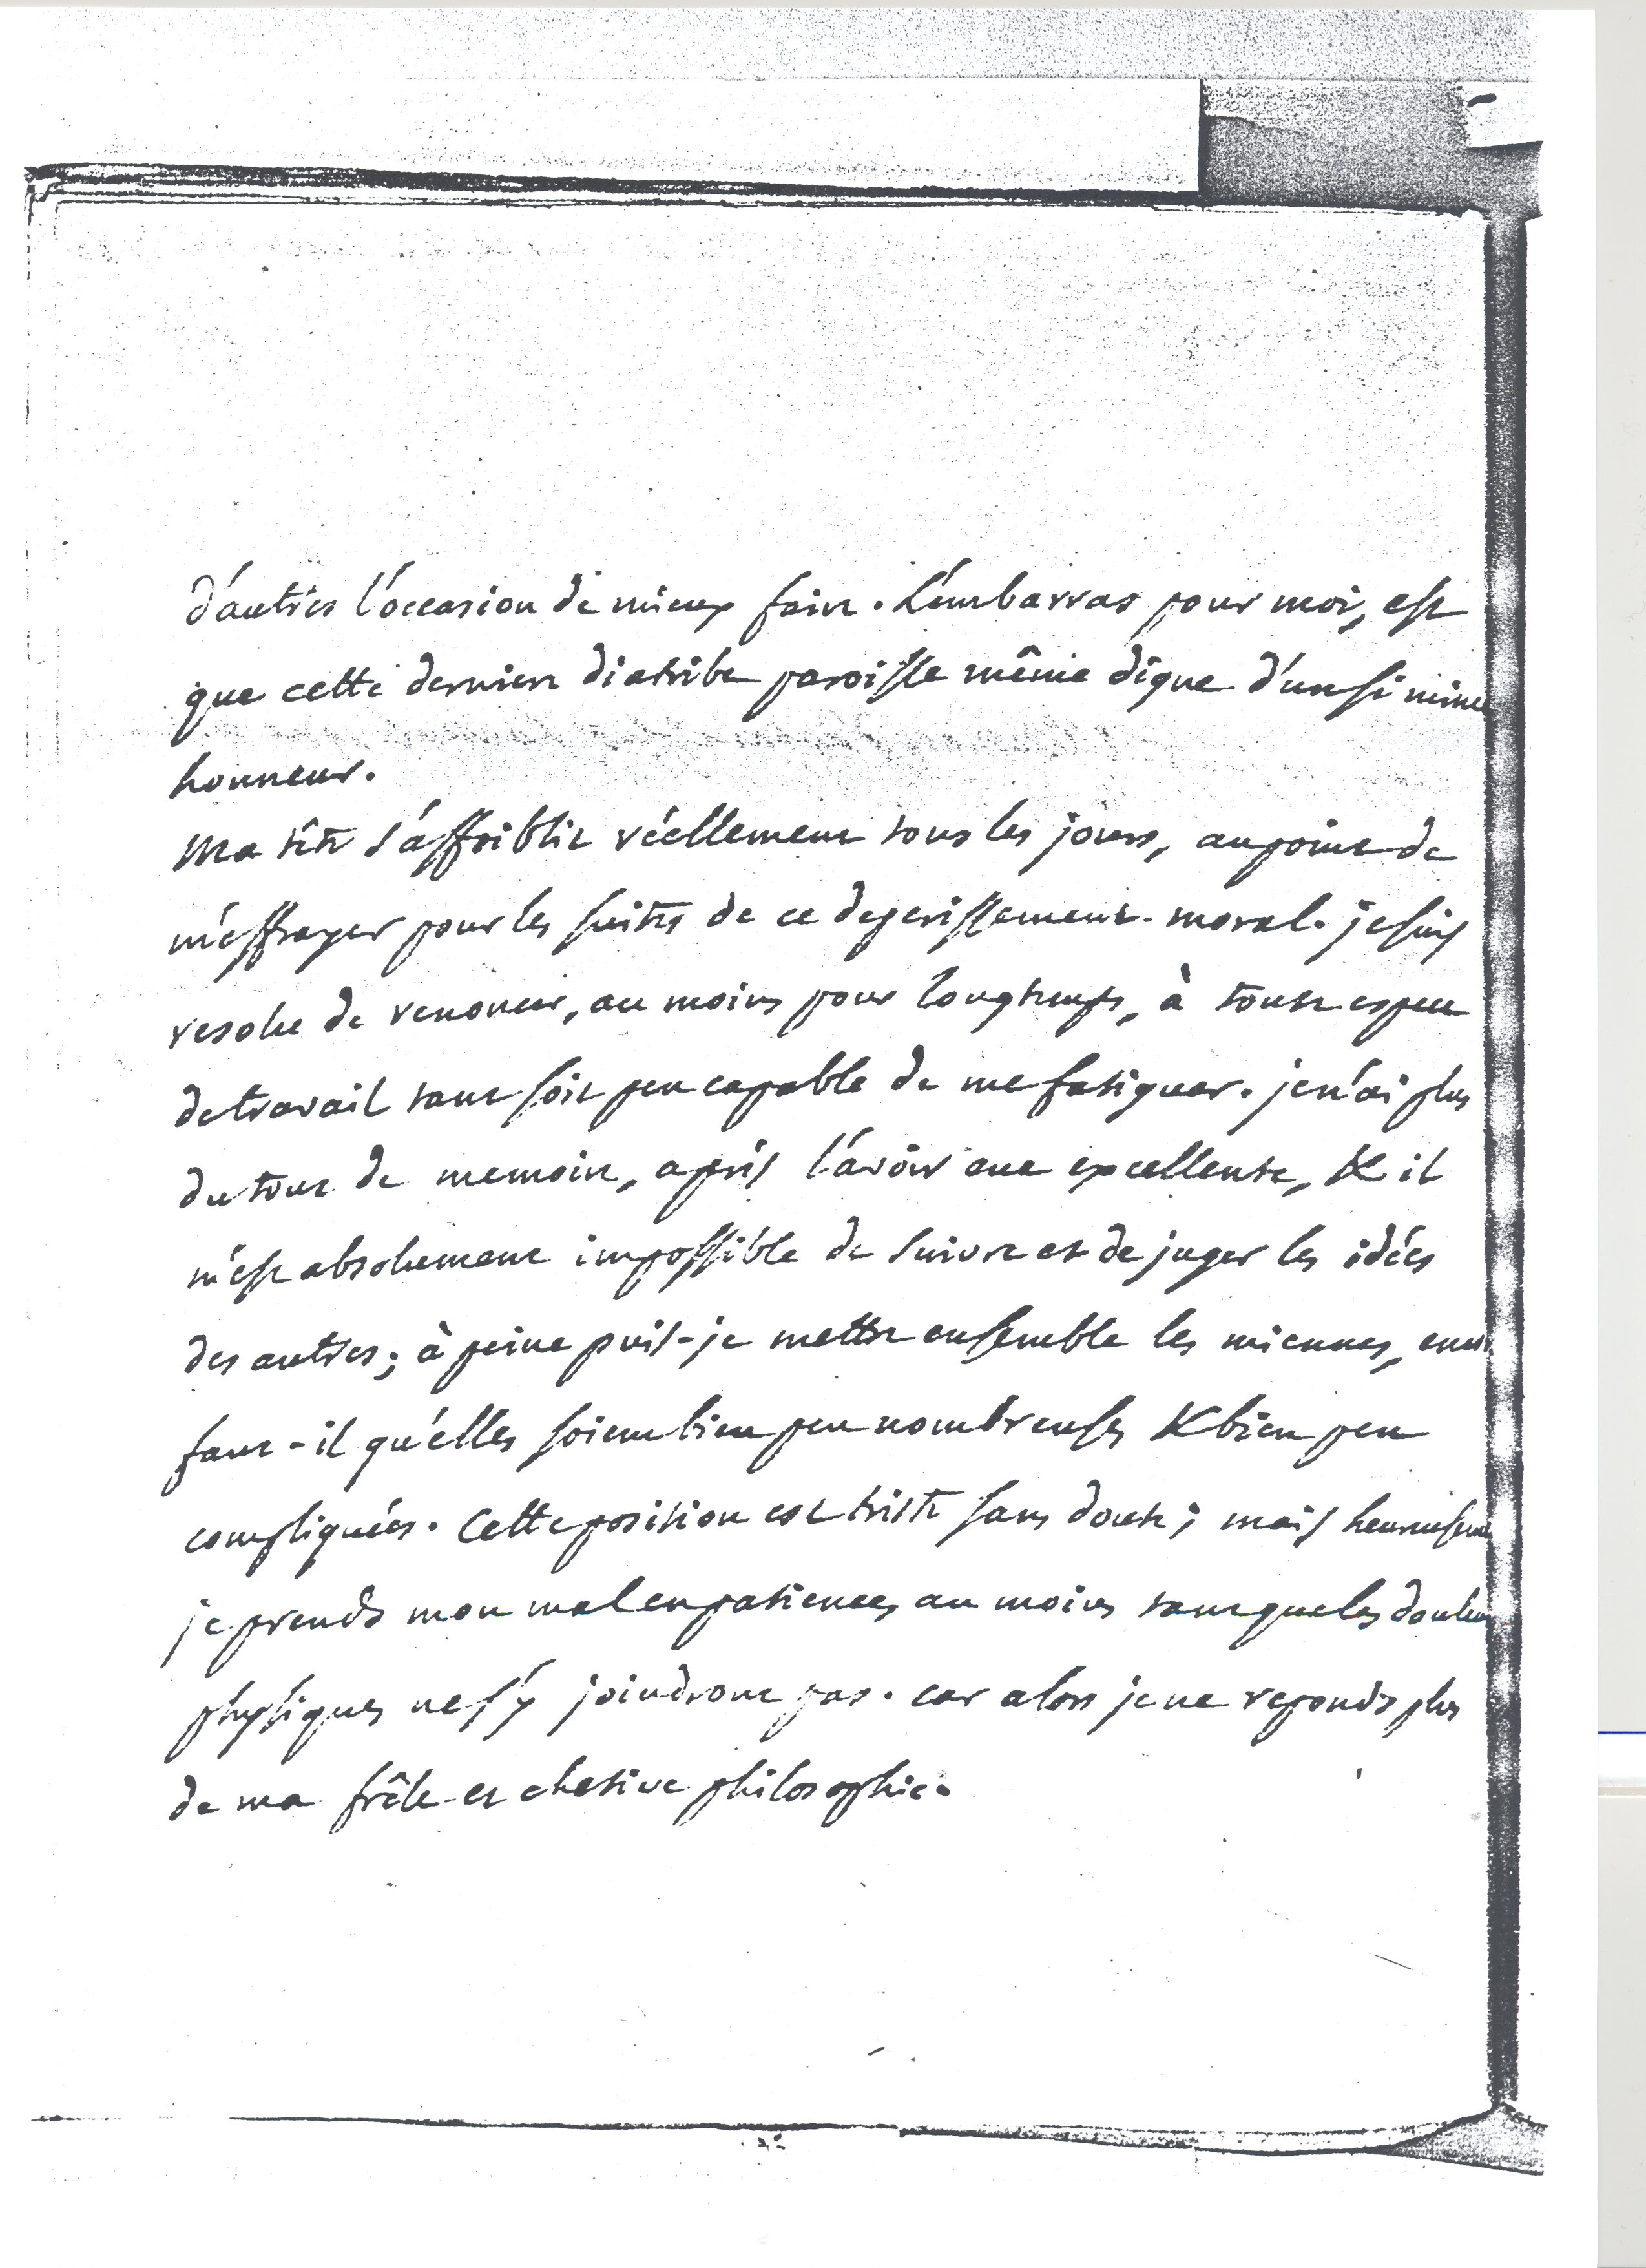 d'autres l'occasion de mieux faire. L'embarras pour moi, est
que cette derniere diatribe paroisse même digne d'un si mince
honneur.
Ma tête s'affoiblit réellement tous les jours, au point de
m'effrayer pour les suites de ce deperissement moral. je suis
resolu de renoncer, au moins pour longtemps, à toute espece
de travail tant soit peu capable de me fatiguer. je n'ai plus
du tout de memoire, après l'avoir eue excellente, & il
m'est absolument impossible de suivre et de juger les idées
des autres; à peine puis-je mettre ensemble les miennes, encor
faut-il qu'elles soient bien peu nombreuses & bien peu
compliquées. Cette position est triste sans doute; mais heureusem
je prends mon mal en patience, au moins tant que les douleurs
physiques ne s'y joindront pas. car alors je ne reponds plus
de ma frêle et chetive philosophie.